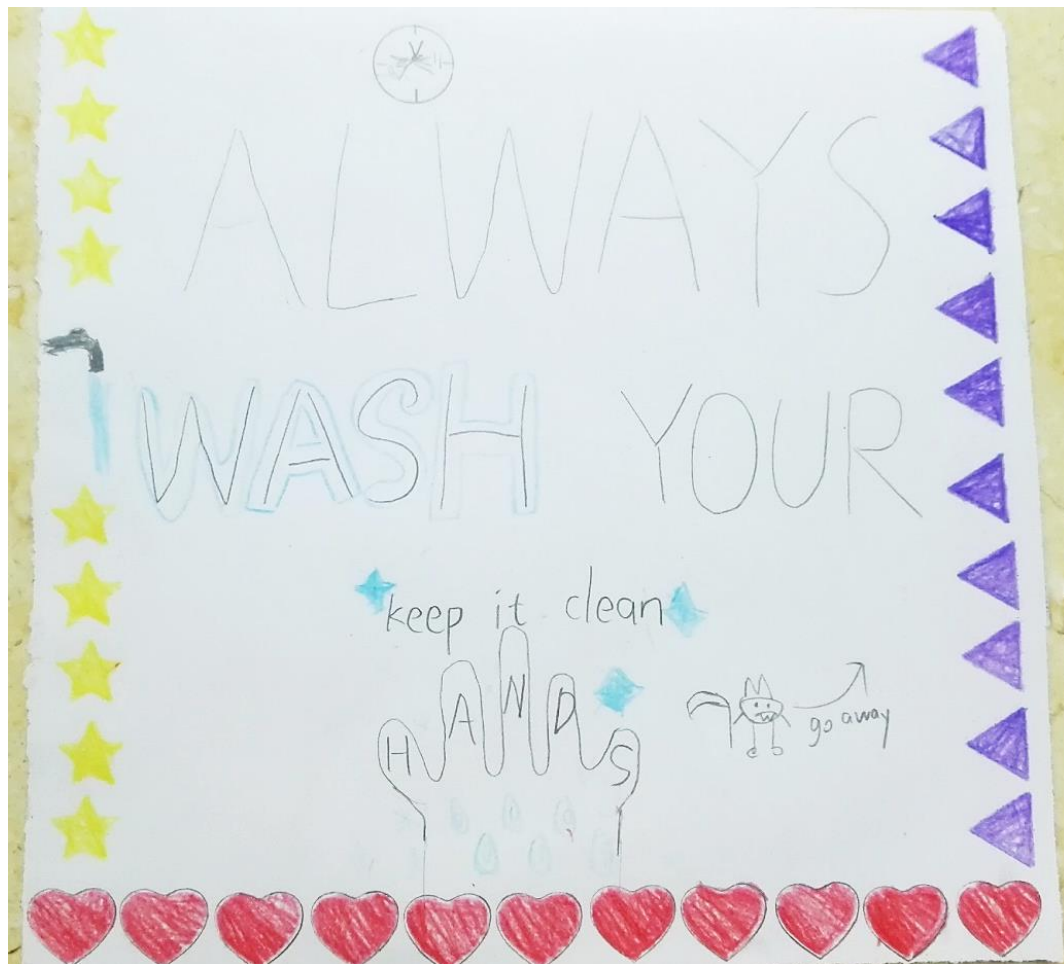 ALWAYS
WASH YOUR
keep it clean
HANDS
go away